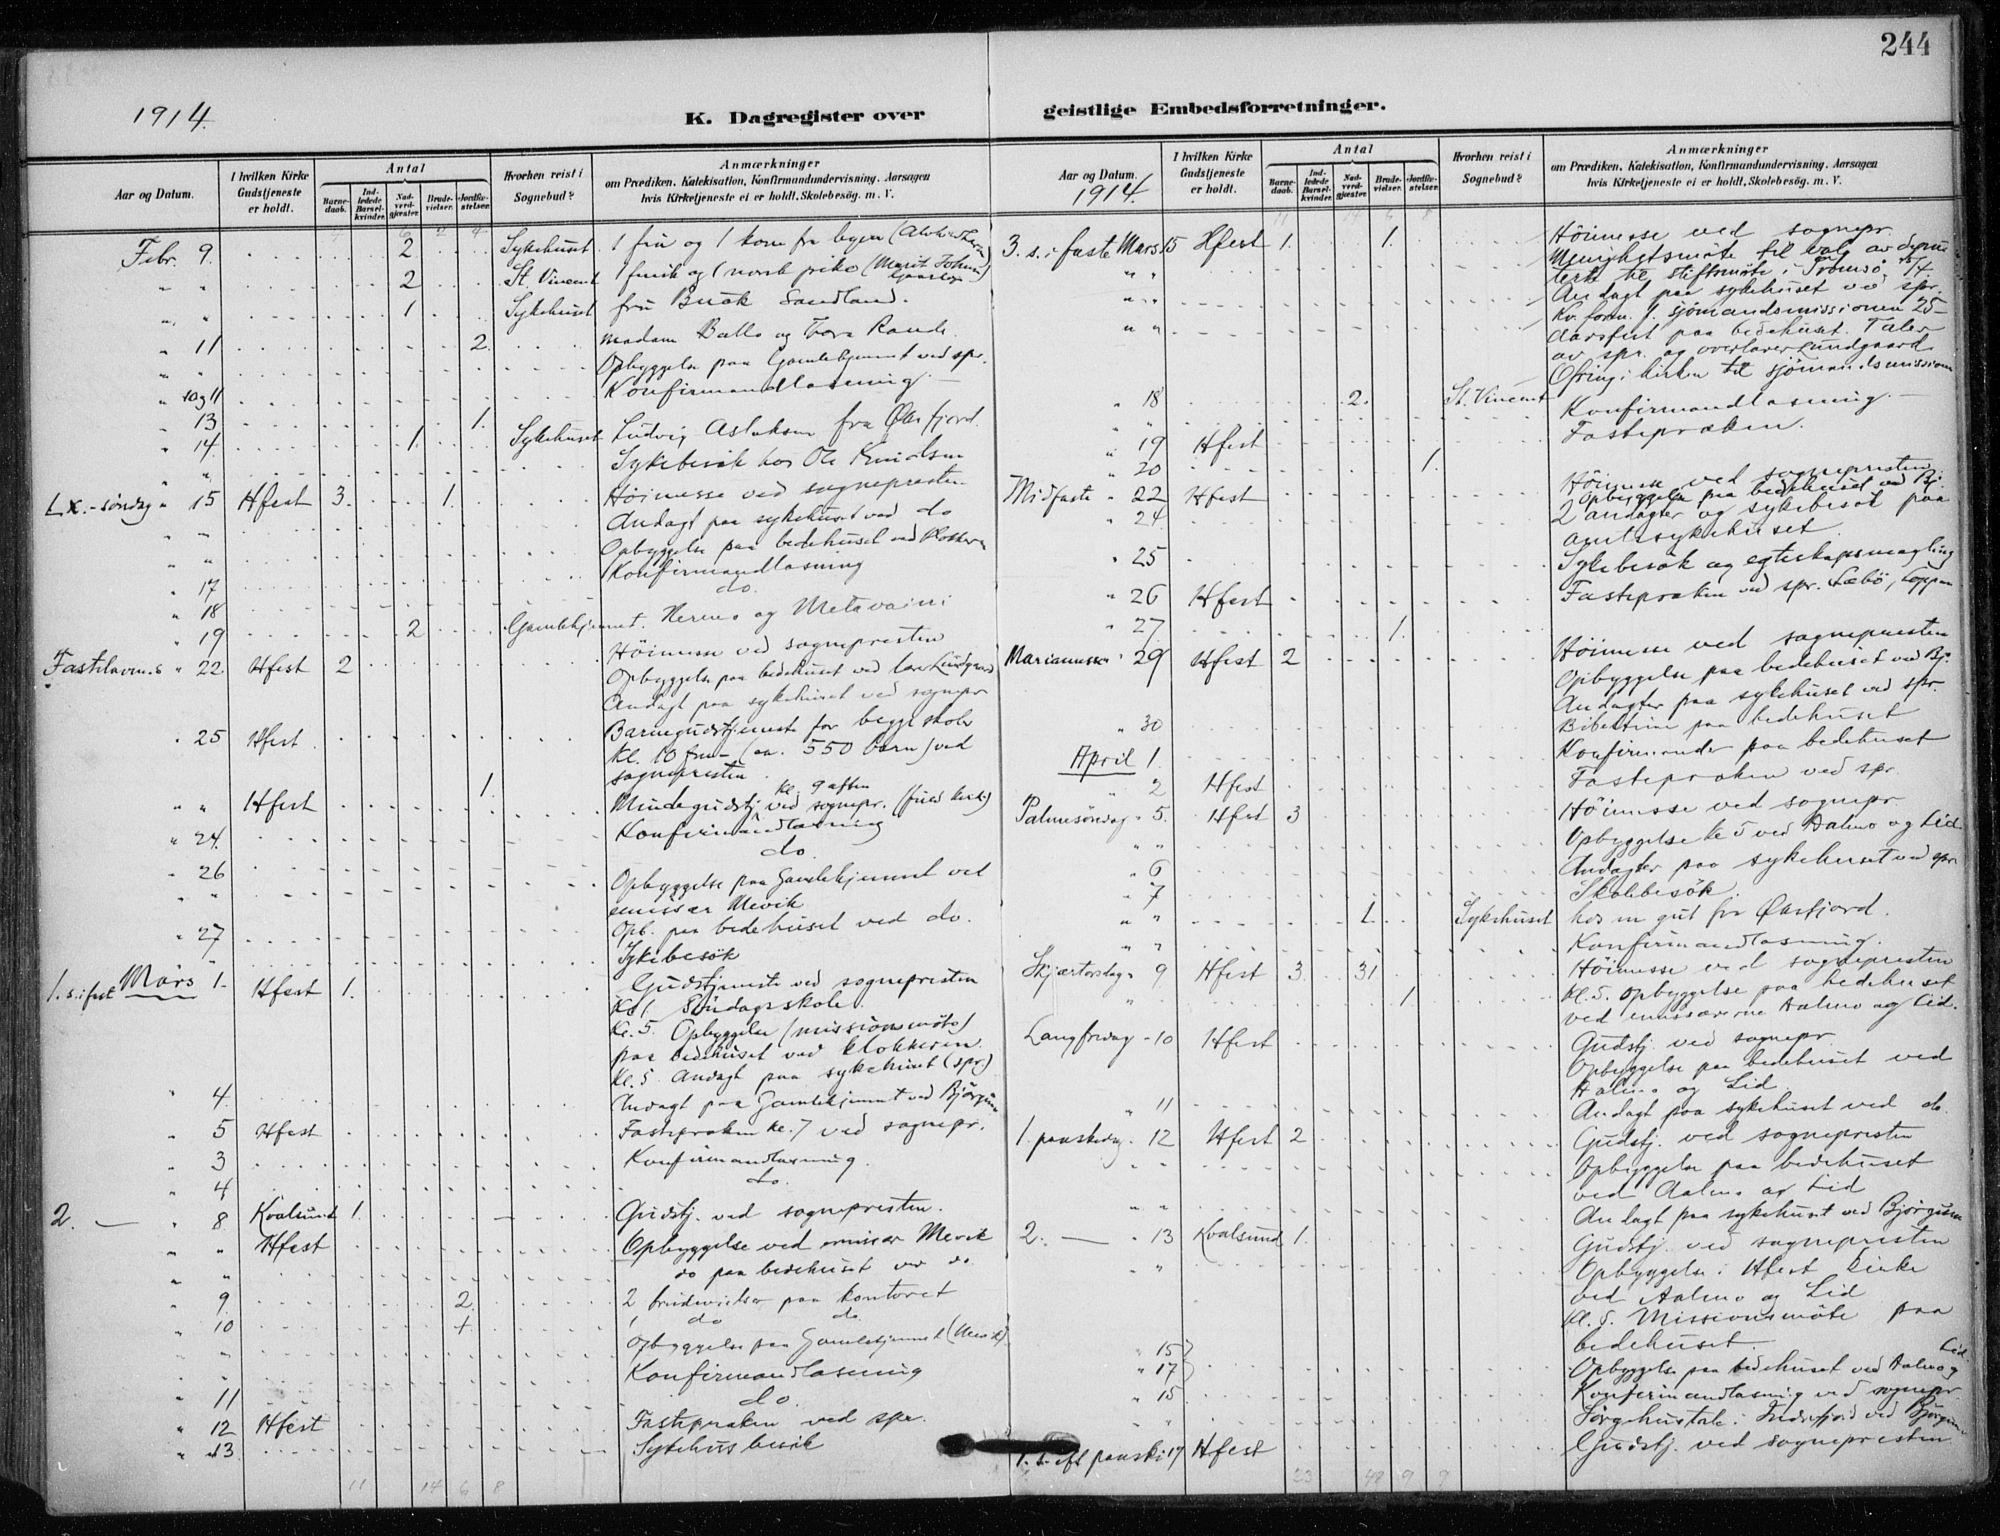 244
1914.
K. Dagregister over geistlige Embedsforretninger.
Aar og Datum.
I hvilken Kirke Gudstjeneste er holdt.
Antal
Barne-daab.
Ind-ledede Barsel-kvinder.
Nad-verd-gjæster.
Brude-vielser.
Jordfæ-stelser.
Hvorhen reist i Sognebud?
Anmærkninger
om Prædiken, Katekisation, Konfirmandundervisning, Aarsagen
hvis Kirketjeneste ei er holdt, Skolebesøg. m. V.
Febr. 9. 2 Sykehuset 1 fin og 1 kone fra byen
" " 2 St. Vincent 1 finsk og 1 norsk pike
" " 1 Sykehuset fru Buck Sandland.
" 11 2. madam Balle og Tora
" " Opbyggelse paa Gamlehjemmet ved spr.
" 10 og 11 Konfirmandlæsning.
" 13 1.
" 14 1. Sykehuset Ludvig Aslaksen fra Øksfjord.
" Sykebesök hos Ole Knudsen
Lx.-søndag " 15 Hfest 3. 1. Höimesse ved sognepresten
" " Andagt paa sykehuset ved do
" " Opbyggelse paa bedehuset ved klokkeren
" 17 Konfirmandlæsning
" 18 do.
" 19 2 Gamlehjemmet.
Fastelavns " 22. Hfest 2 Höimesse ved sognepresten
Opbyggelse paa bedehuset ved Lundgaard
Andagt paa sykehuset ved sognepr
" 25 Hfest Barnegudstjeneste for begge skoler
kl. 10 fm (ca. 550 barn) ved
sognepresten.
" " Hfest 1. Mindegudstj. ved sognepr. kl. 9 aften
" 24. Konfirmandlæsning
" 26 do.
" " Opbyggelse paa Gamlehjemmet ved
emissær Mevik
" 27 Opb. paa bedehuset ved do.
Sykebesök
1. s. i fast Mars 1. Hfest 1. Gudstjeneste ved sognepresten
Kl 1. Söndagsskole.
Kl. 5. Opbyggelse (missionsmöte)
paa bedehuset ved klokkeren.
Kl. 5 Andagt paa sykehuset (spr.)
" 4. Andagt paa Gamlehjemmet ved Björgum
" 5 Hfest Fastepræken kl. 7 ved sognepr.
" 3 Konfirmandlæsning.
" 4 do.
2. — " 8 Kvalsund 1. Gudstj. ved sognepresten.
" " Hfest Opbyggelse ved emissær Mevik
" " do paa bedehuset ved do
" 9 2. 2 brudevielser paa kontoret
" 10 1 do do
Opbyggelse paa Gamlehjemmet (Mevik)
Konfirmandlæsning
" 11 do.
" 12 Hfest Fastepræken ved spr.
" 13 Sykehusbesök
11 14 6 8
Aar og Datum.
1914.
I hvilken Kirke Gudstjeneste er holdt.
Antal
Barne-daab.
Ind-ledede Barsel-kvinder.
Nad-verd-gjæster.
Brude-vielser.
Jordfæ-stelser.
Hvorhen reist i Sognebud?
Anmærkninger
om Prædiken, Katekisation, Konfirmandundervisning, Aarsagen
hvis Kirketjeneste ei er holdt, Skolebesøg. m. V.
11 14 6 8
3. s. i faste Mars 15 Hfest 1. 1. Höimesse ved sognepr.
" " Menighetsmöte til valg av depu
terte til stiftsmöte i Tromsö
" " Andagt paa sykehuset ved spr.
" " Kv. foren. f. sjömandsmissionen 25-
aarsfest paa bedehuset. Taler
av spr. og overlærer Lundgaard
Ofring i kirken til sjömandsmissionen
" 18 2. St. Vincent
" Konfirmandlæsning.
" 19 Hfest Fastepræken.
" 20 1.
Midfaste " 22 Hfest Höimesse ved sognepresten
Opbyggelse paa bedehuset ved Bj.
" 24 2 andagter og sykebesök paa
amtssykehuset
" 25 Sykebesök og egteskapsmægling
" 26 Hfest Fastepræken ved spr. Læbö, Loppen
" 27 1.
Mariamesse " 29 Hfest 2 Höimesse ved sognepresten
Opbyggelse paa bedehuset ved Bj.
Andagter paa sykehuset ved spr.
" 30 Bibeltime paa bedehuset
April 1. Konfirmander paa bedehuset
" 2 Hfest Fastepræken ved spr.
Palmesöndag " 5. Hfest 3 Höimesse ved sognepr.
" " Opbyggelse kl 5 ved Aalmo og Lid
" 6 Andagter paa sykehuset ved spr
" 7 Skolebesök.
" " 1. Sykehuset hos en gut fra Øksfjord.
" " Konfirmandlæsning.
Skjærtorsdag " 9 Hfest 3. 31 Höimesse ved sognepresten
" 1 Kl. 5. Opbyggelse paa bedehuset
ved emissærerne Aalmo og Lid.
Langfredag " 10 Hfest Gudstj. ved sognepr.
Opbyggelse paa bedehuset ved
Aalmo og Lid.
" 11 Andagt paa sykehuset ved do.
1. paaskedag " 12 Hfest 2 Gudstj. ved sognepresten
" " Opbyggelse paa bedehuset
ved Aalmo og Lid
" " Andagt paa sykehuset ved Björgum
2. — " 13 Kvalsund 1. Gudstj. ved sognepresten
" " Opbyggelse i Hfest kirke
ved Aalmo og Lid
Kl. 5. Missionsmöte paa
bedehuset.
" 15 Opbyggelse paa bedehuset ved Aalmo og Lid
" 17
" 15 Konfirmandlæsning ved sognepr.
" Sörgehustale i Indrefjord ved Björgum
1. s. eft paaske 19 Hfest Gudstj. ved sognepresten
23 48 9 9